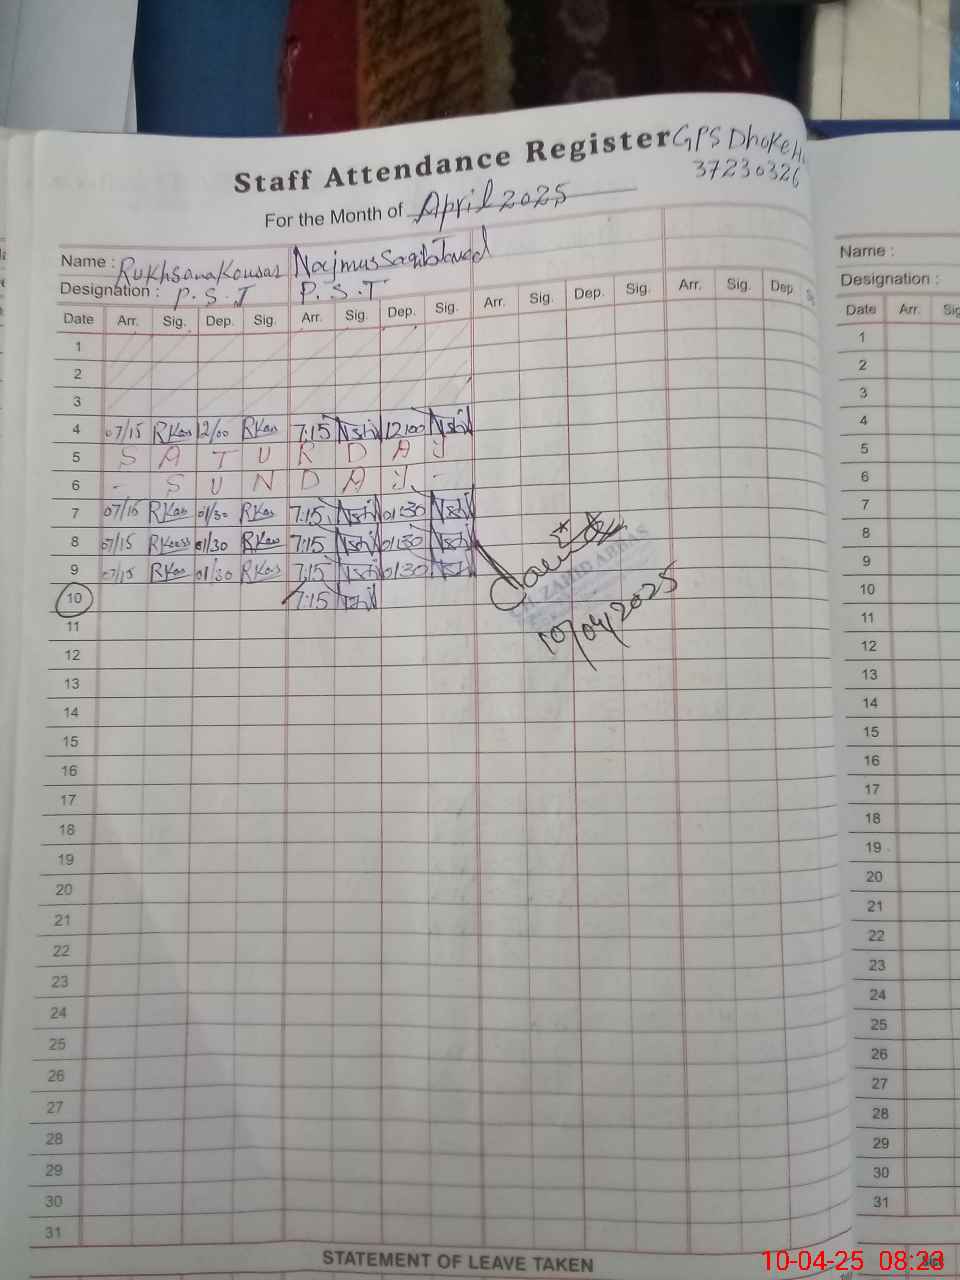 Staff Attendance Register GPS Dhoke
37230326
For the Month of April 2025
Name : Rukhsana Kousar Najmus Saqib Javed
Designation : P.S.T P.S.T
Date Arr. Sig. Dep. Sig. Arr. Sig. Dep. Sig. Arr. Sig. Dep. Sig. Arr. Sig. Dep
1
2
3
4 07/15 RKou 12/00 RKou 7:15 12:00
5 S A T U R D A Y
6 - S U N D A Y -
7 07/15 RKou 01/30 RKou 7:15 01:30
8 07/15 01/30 RKou 7:15 01:30
9 07/15 RKou 01/30 RKou 7:15 01:30
10 7:15
ZAHID ABBAS
10/04/2025
11
12
13
14
15
16
17
18
19
20
21
22
23
24
25
26
27
28
29
30
31
STATEMENT OF LEAVE TAKEN
Name :
Designation :
Date Arr. Sig
1
2
3
4
5
6
7
8
9
10
11
12
13
14
15
16
17
18
19
20
21
22
23
24
25
26
27
28
29
30
31
10-04-25 08:23